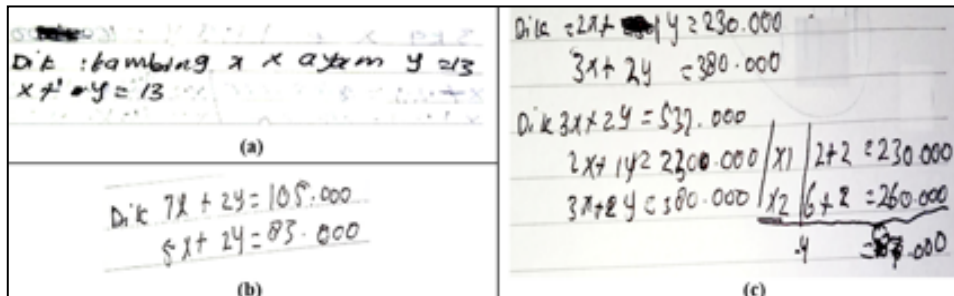 Dit : kambing x x ayam y =13
x + y = 13
(a)
Dik 7x + 2y = 105.000
5x + 2y = 83.000
(b)
Dik = 2x + 1 y = 230.000
3x + 2y = 380.000
Dik 3x + 2y = 532.000
2x + 1y = 2300.000 | x1 | 2+2 = 230.000
3x + 2y = 380.000 | x2 | 6+2 = 260.000
-4 = .000
(c)